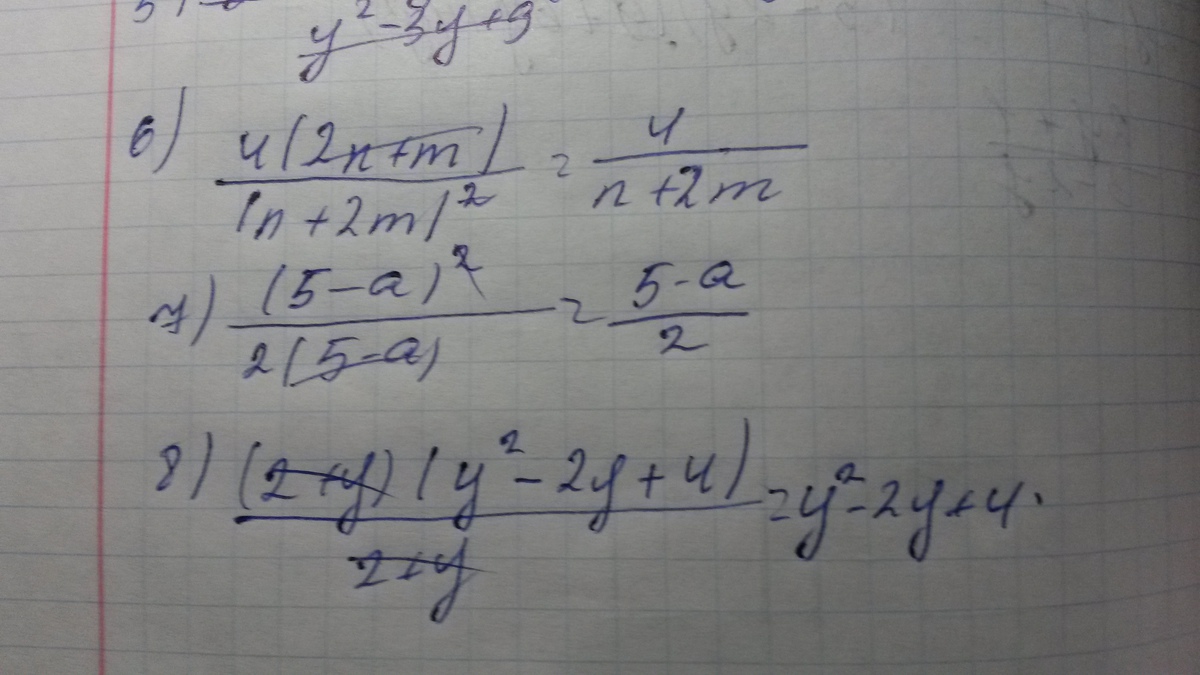 5)
y² - 3y + 9
6) 4(2n+m) / (n+2m)² = 4 / n+2m
7) (5-a)² / 2(5-a) = 5-a / 2
8) (2+y)(y²-2y+4) / 2+y = y²-2y+4.